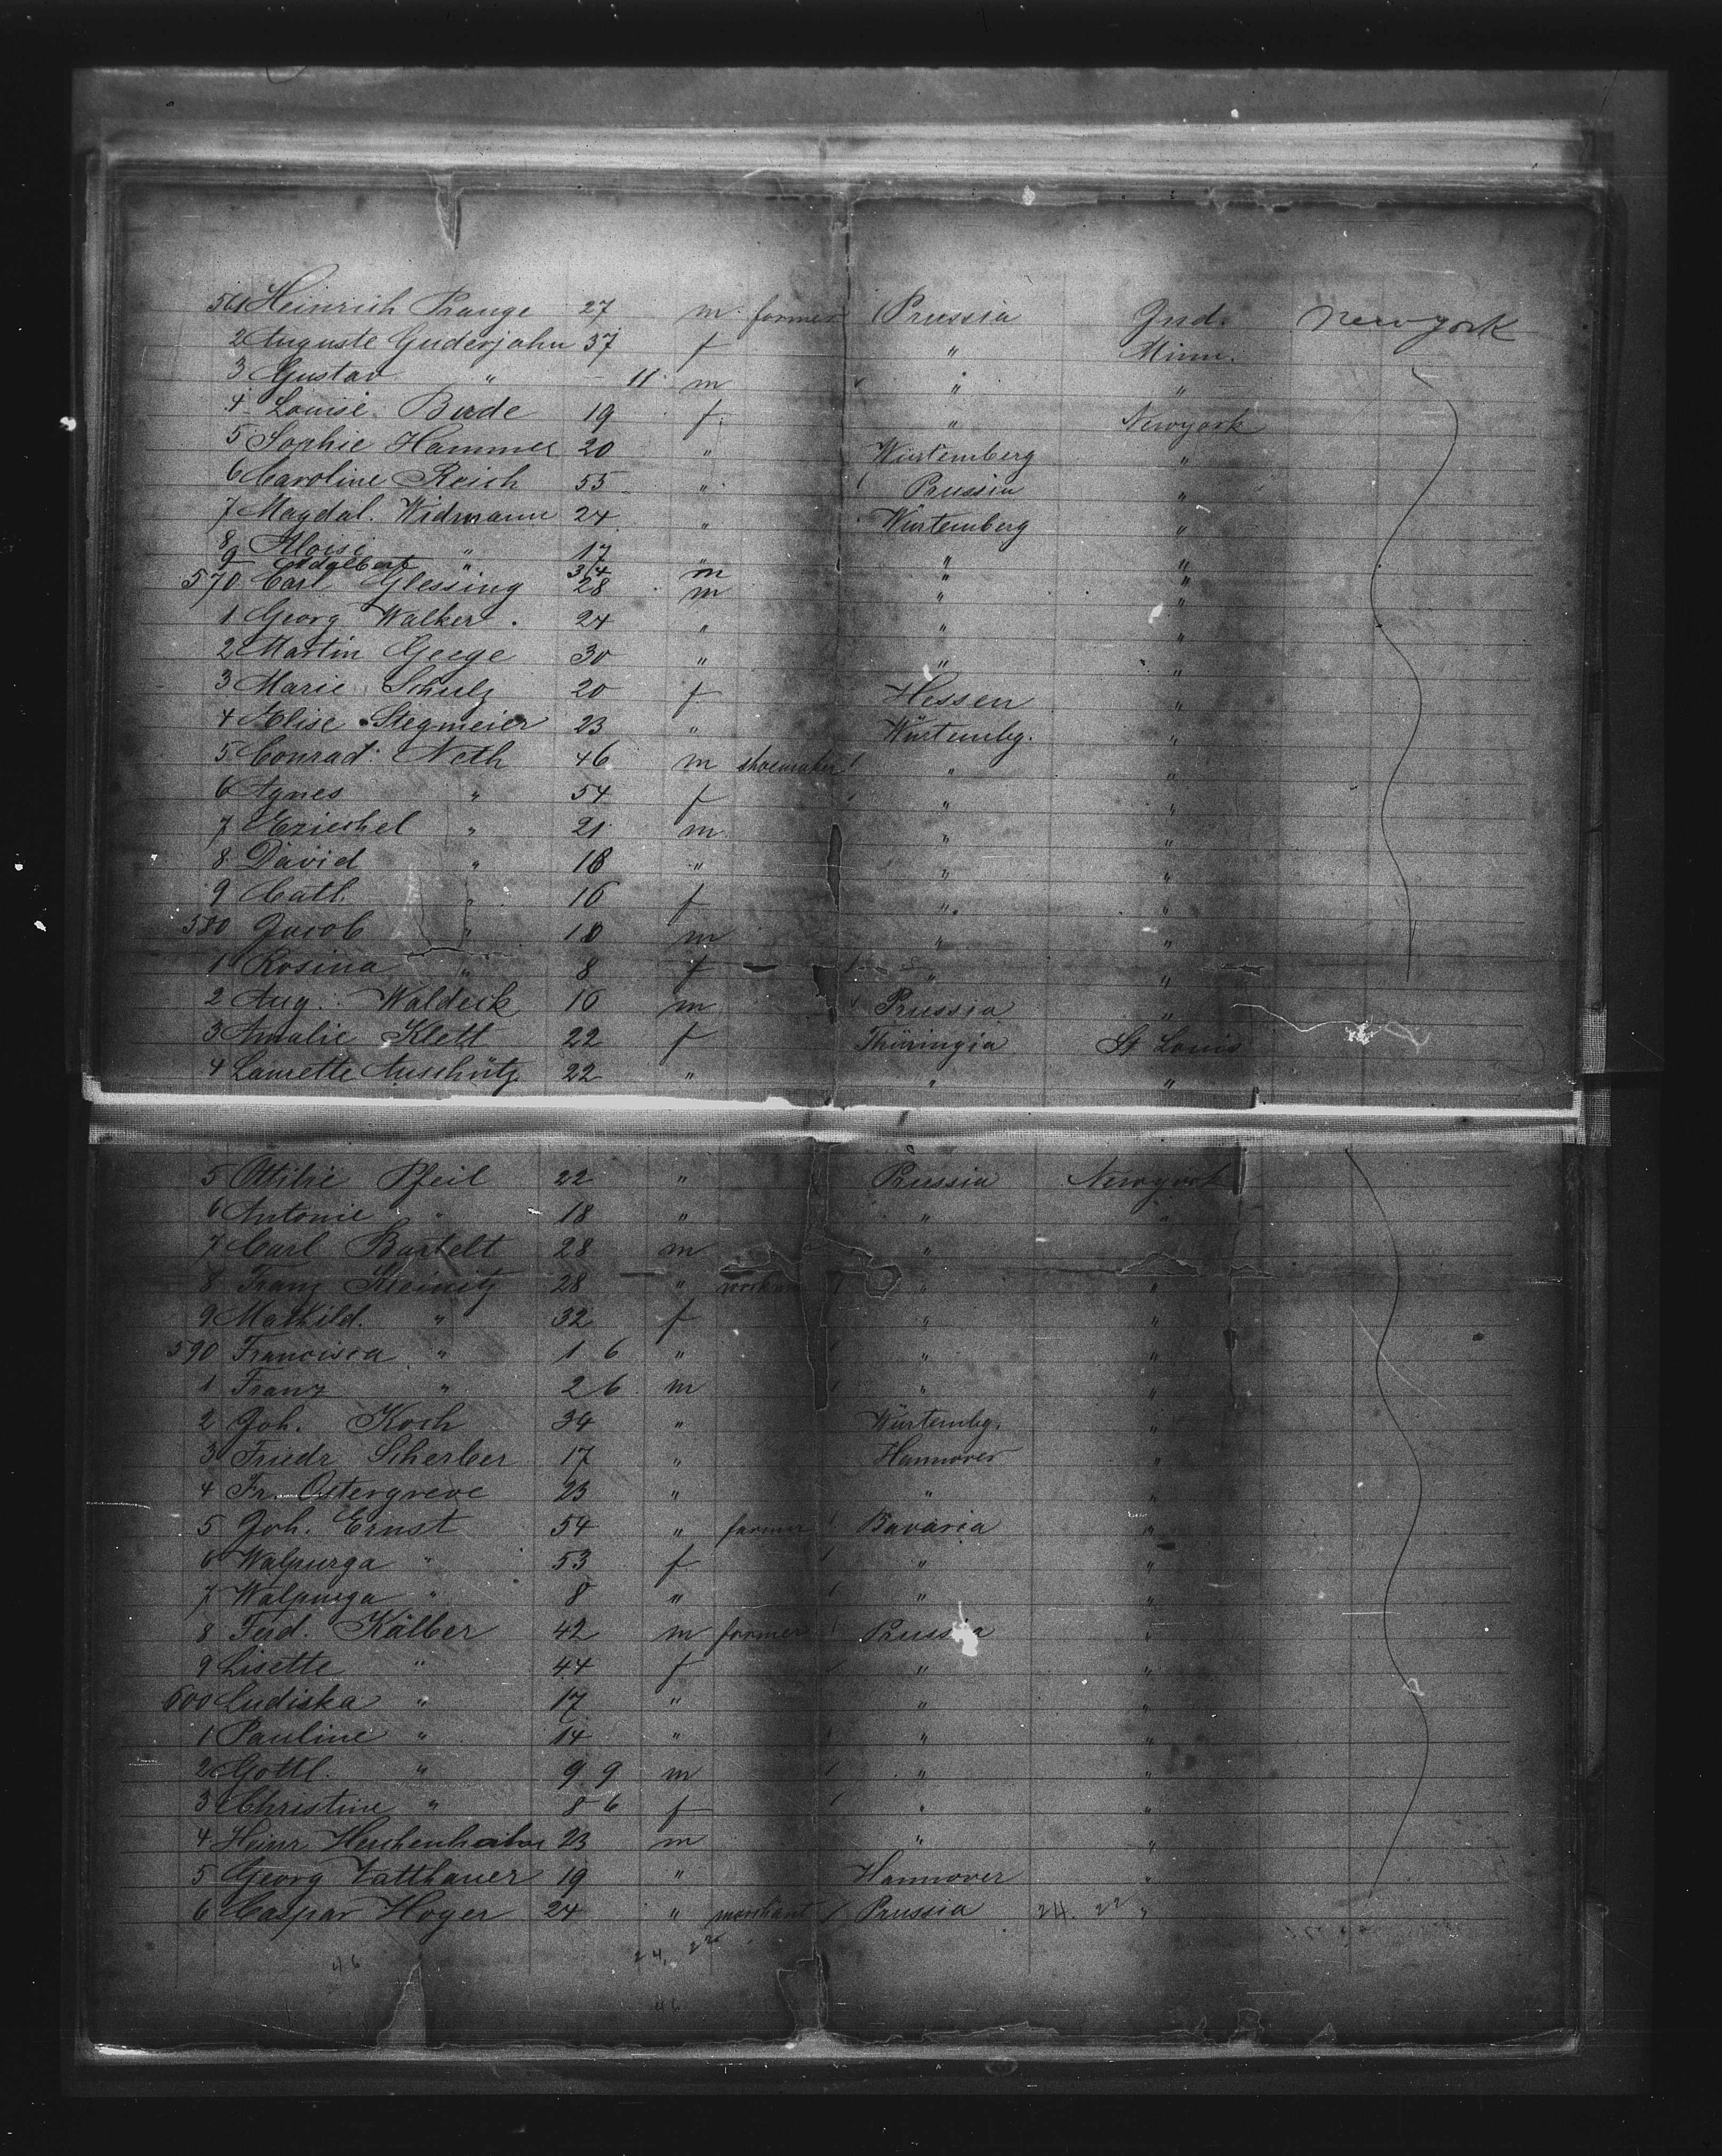 561 Heinrich Prange 27 m farmer Prussia Ind. Newyork
2 Auguste Guderjahn 37 f " Minn.
3 Gustav " 11 m " "
4 Louise Bude 19 f " Newyork
5 Sophie Hammer 20 " Würtemberg "
6 Caroline Reich 55 " Prussia "
7 Magdal. Widmann 24 " Würtemberg "
8 Aloisi " 17 " " "
9 " 3/4 m " "
570 Carl Glessing 28 m " "
1 Georg Walker 24 " " "
2 Martin Geege 30 " " "
3 Marie Schulz 20 f Hessen "
4 Elise Stegmeier 23 " Würtembg. "
5 Conrad Neth 46 m shoemaker " "
6 Agnes " 54 f " "
7 " 21 m " "
8 David " 18 " " "
9 Cath. " 16 f " "
580 Jacob " 10 m " "
1 Rosina " 8 f " "
2 Aug. Waldeck 16 m Prussia "
3 Amalie Klett 22 f Thüringia St Louis
4 Laurette Anschütz 22 " " "
5 Ottilie Pfeil 22 " Prussia Newyork
6 Antonie " 18 " " "
7 Carl Bartelt 28 m "
8 Franz Kleinitz 28 " " "
9 Mathild. " 32 f " "
590 Francisca " 1 6 " " "
1 Franz " 2 6 m " "
2 Joh. Koch 34 " Würtembg. "
3 Friedr Scherber 17 " Hannover "
4 Fr. Ostergreve 23 " " "
5 Joh. Ernst 54 " farmer Bavaria "
6 Walpurga " 53 f " "
7 Walpurga " 8 " " "
8 Ferd. Kälber 42 m farmer Prussia "
9 Lisette " 44 f " "
600 Ludiska " 17 " " "
1 Pauline " 14 " " "
2 Gottl. " 9 9 m " "
3 Christine " 8 6 f " "
4 Heinr 23 m " "
5 Georg Vatthauer 19 " Hannover "
6 Caspar Hoyer 24 " merchant Prussia 24. 22 "
46 24. 22
46